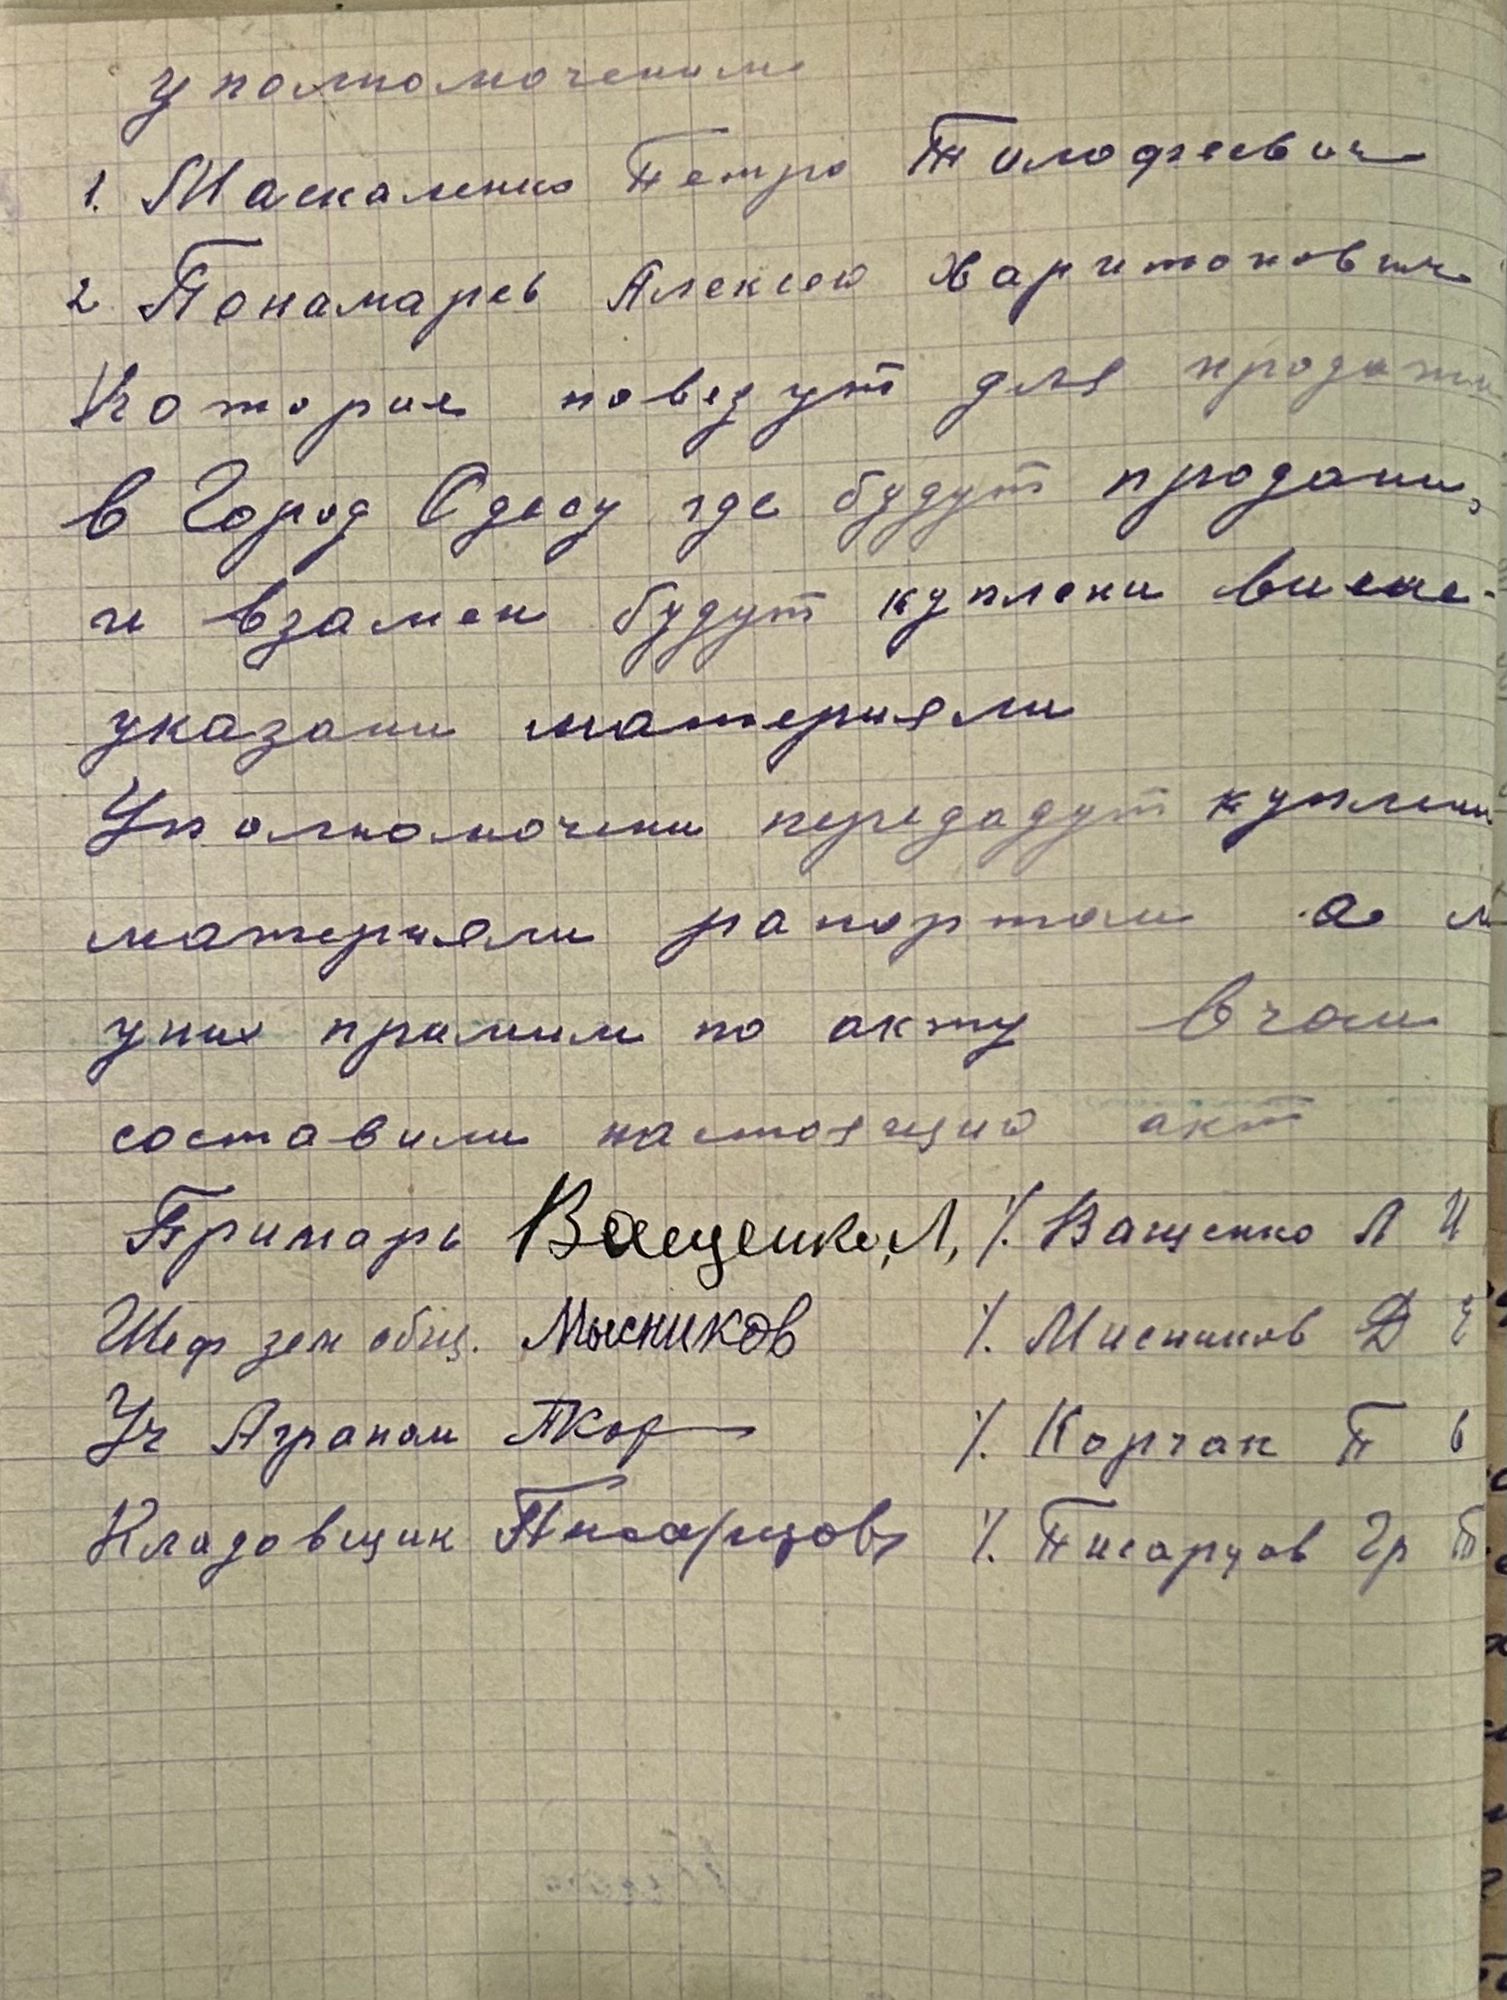 уполномочения
1. Маскаленко Петро Тимофеевич
2 Понамарев Алексею Харитонович
Котория повезут для продажи
в Город Одесу где будут продани,
и взамен будут куплени више-
указани материяли
Уполномочени передадут куплени
материяли рапортом а м
уних примим по акту В чом
составили настоящию акт
Примарь Ващенко, Л, /. Ващенко Л И
Шеф зем общ. Мысников /. Мисников Д Е
Уч Агроном ПКор /. Корчак П В
Кладовщик Писарцов /. Писарцов Гр Т